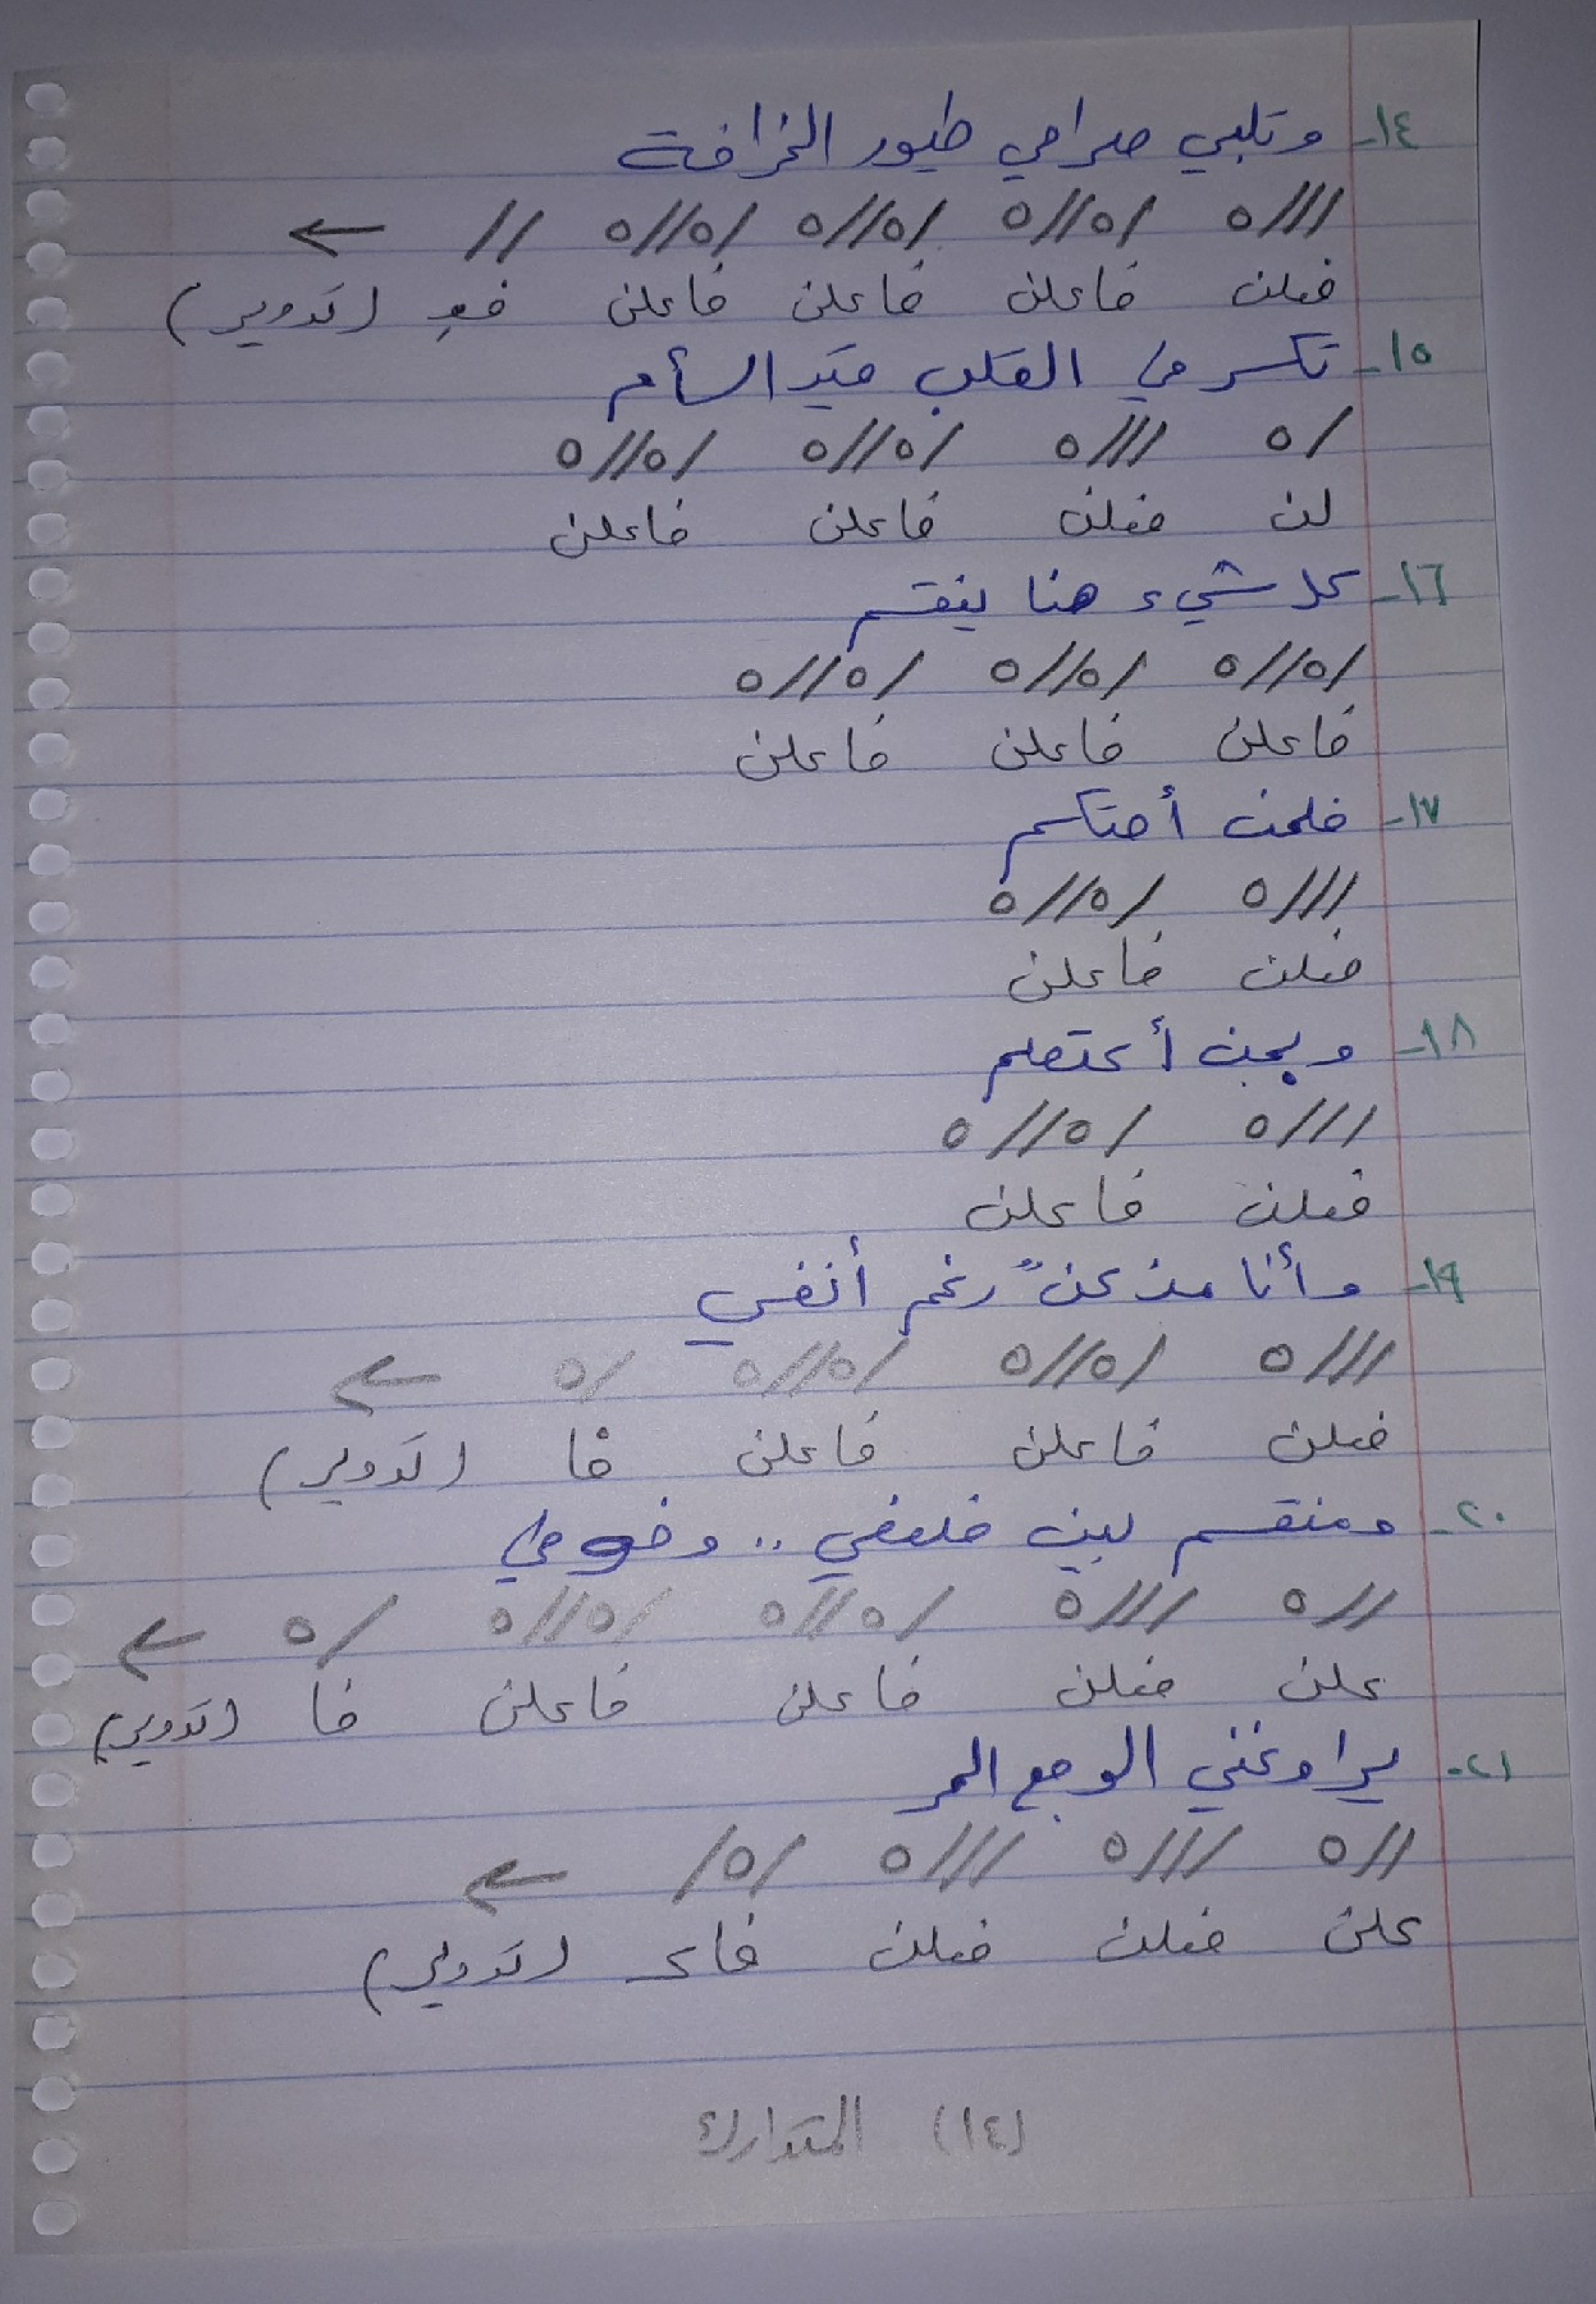 ١٤- وتلبي صراحي طيور الخرافة
///ه /ه//ه /ه//ه /ه//ه // ←
فعلن فاعلن فاعلن فاعلن فعِ (تدوير)
١٥- تكسر في القلب قيد السأم
/ه ///ه /ه//ه /ه//ه
لن فعلن فاعلن فاعلن
١٦- كل شيء هنا ينقسم
/ه//ه /ه//ه /ه//ه
فاعلن فاعلن فاعلن
١٧- فلمن أحتكم
///ه /ه//ه
فعلن فاعلن
١٨- وبمن أعتصم
///ه /ه//ه
فعلن فاعلن
١٩- وأنا مذعنٌ رغم أنفي
///ه /ه//ه /ه//ه /ه ←
فعلن فاعلن فاعلن فا (تدوير)
٢٠- ومنقسم بين ضلعي .. وخوفي
//ه ///ه /ه//ه /ه//ه /ه ←
علن فعلن فاعلن فاعلن فا (تدوير)
٢١- يراوغني الوجع المر
//ه ///ه ///ه /ه/ ←
علن فعلن فعلن فاعـ (تدوير)
(١٤) المتدارك